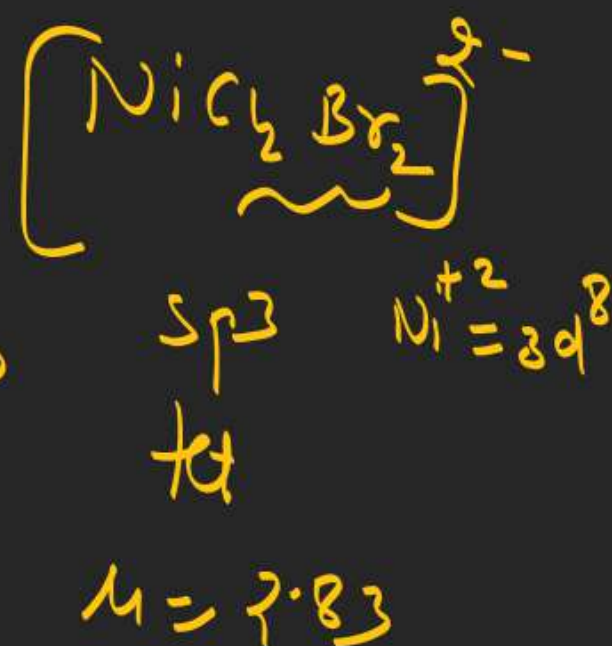 [NiCl2Br2]^2-
sp3 Ni^+2 = 3d^8
tet
μ = 2.83